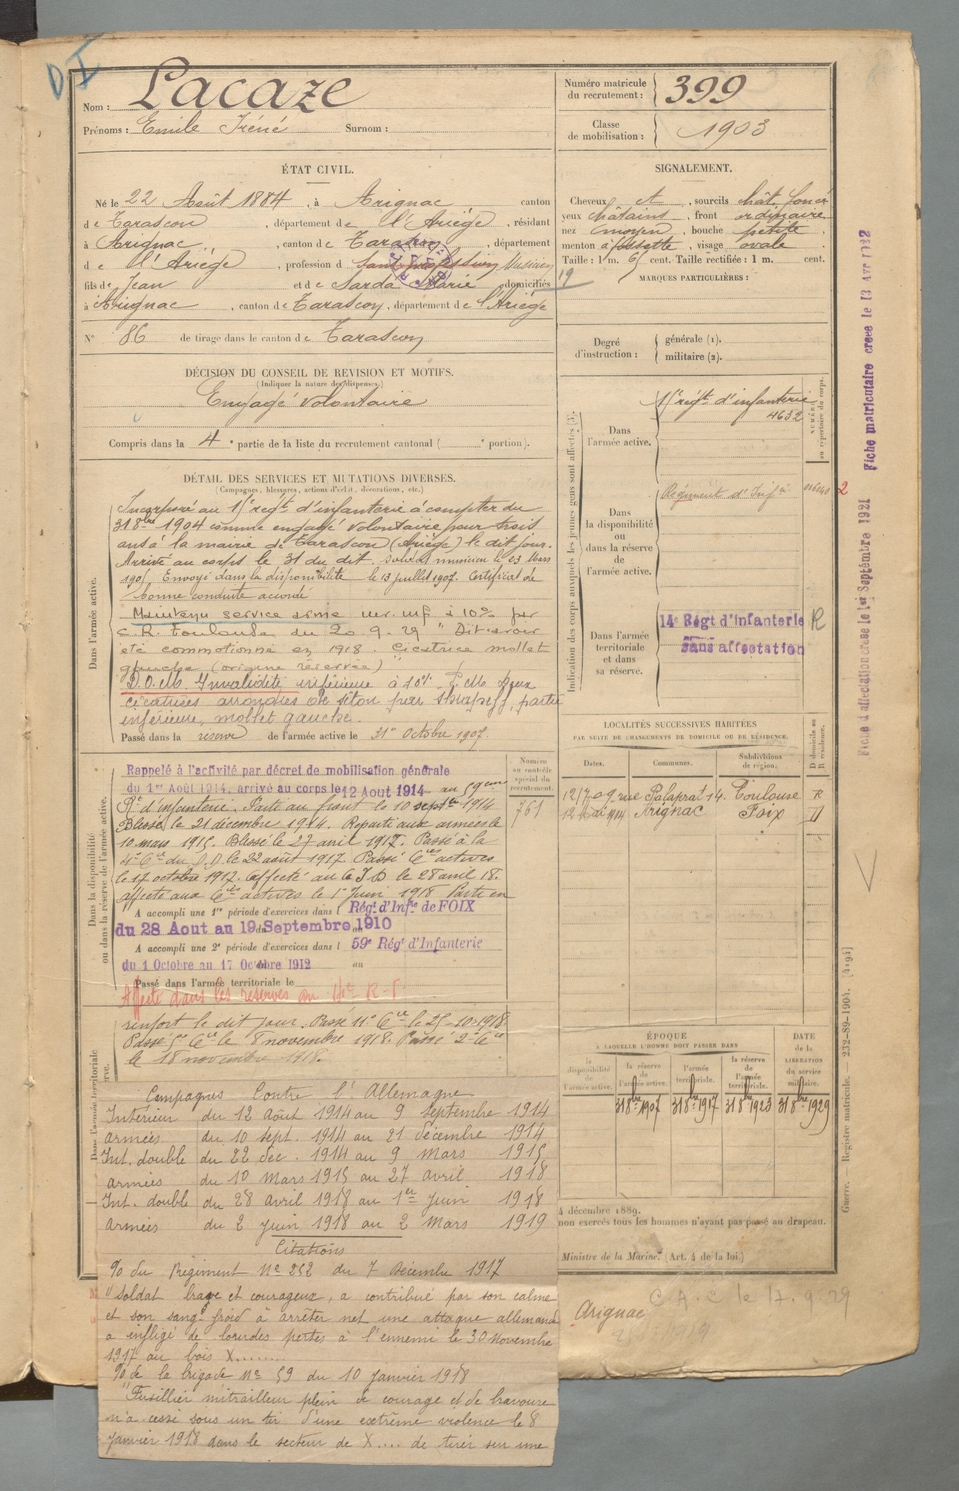 D I
Nom : Lacaze
Prénoms : Emile Iréné Surnom :
Numéro matricule du recrutement : 399
Classe de mobilisation : 1903
ÉTAT CIVIL.
Né le 22 Août 1884, à Arignac canton
de Tarascon, département de l'Ariège, résidant
à Arignac, canton de Tarascon, département
de l'Ariège, profession de Sans profession Musicien
fils de Jean et de Sarda Marie domiciliés
à Arignac, canton de Tarascon, département de l'Ariège
N° 86 de tirage dans le canton de Tarascon
SIGNALEMENT.
Cheveux et, sourcils chât. foncé
yeux châtains, front ordinaire
nez moyen, bouche petite
menton à fossette, visage ovale
Taille : 1 m. 65 cent. Taille rectifiée : 1 m. cent.
19
MARQUES PARTICULIÈRES :
Degré d'instruction : générale (1).
militaire (2).
DÉCISION DU CONSEIL DE REVISION ET MOTIFS.
(Indiquer la nature des dispenses.)
Engagé Volontaire
Compris dans la 4e partie de la liste du recrutement cantonal ( e portion).
DÉTAIL DES SERVICES ET MUTATIONS DIVERSES.
(Campagnes, blessures, actions d'éclat, décorations, etc.)
Dans l'armée active.
Incorporé au régt d'infanterie à compter du
31 8bre 1904 comme engagé volontaire pour trois
ans à la mairie de Tarascon (Ariège) le dit jour.
Arrivé au corps le 31 du dit. Soldat musicien le 23 Mars
Envoyé dans la disponibilité le 13 juillet 1907. Certificat de
bonne conduite accordé
Maintenu service armé à 10% par
C. R. Toulouse du 20-9-29 " Dit avoir
été commotionné en 1918. Cicatrice mollet
gauche (origine réservée)
Invalidité inférieure à 10% deux
cicatrices arrondies de séton par partie
inférieure, mollet gauche.
Passé dans la réserve de l'armée active le 31 Octobre 1907.
Indication des corps auxquels les jeunes gens sont affectés (3).
Dans l'armée active.
régt d'infanterie
4632
NUMÉRO au répertoire du corps.
Dans la disponibilité ou dans la réserve de l'armée active.
Régiment d'Infie
2
Dans l'armée territoriale et dans sa réserve.
14e Régt d'Infanterie R
Sans affectation
Fiche d'affectation créée le 1er Septembre 1921 Fiche matriculaire créée le 13 Avr 1932
Dans la disponibilité ou dans la réserve de l'armée active.
Numéro au contrôle spécial du recrutement.
761
Rappelé à l'activité par décret de mobilisation générale
du 1er Août 1914, arrivé au corps le 12 Août 1914 au 59ème
Rt d'infanterie. Parti au front le 10 septbre 1914
Blessé le 21 décembre 1914. Reparti aux armées le
10 mars 1915. Blessé le 27 avril 1917. Passé à la
4e Cie du D.D. le 22 août 1917. Passé Cies actives
le 17 octobre 1917. Affecté au C.I.D le 28 avril 18.
affecté aux Cies actives le 1er Juin 1918 Parti en
A accompli une 1re période d'exercices dans l Régt d'Infie de FOIX
du 28 Aout au 19 Septembre 1910
A accompli une 2e période d'exercices dans l 59e Régt d'Infanterie
du 1 Octobre au 17 Octobre 1912 au
Passé dans l'armée territoriale le
Affecté dans les réserves au R-I
Dans l'armée territoriale
renfort le dit jour. Passé 11e Cie le 25-10-1918
Passé Cie le 8 novembre 1918. Passé 2e Cie
le 18 novembre 1918.
LOCALITÉS SUCCESSIVES HABITÉES
PAR SUITE DE CHANGEMENTS DE DOMICILE OU DE RÉSIDENCE.
Dates. Communes. Subdivisions de région. D domicile ou R résidence.
rue Palaprat 14. Toulouse R
1914 Arignac Foix D
ÉPOQUE
À LAQUELLE L'HOMME DOIT PASSER DANS
DATE de la LIBÉRATION du service militaire.
la disponibilité de l'armée active.
la réserve de l'armée active.
l'armée territoriale.
la réserve de l'armée territoriale.
31 8bre 1907 31 8bre 1917 31 8bre 1923 31 8bre 1929
4 décembre 1889.
non exercés tous les hommes n'ayant pas passé au drapeau.
Ministre de la Marine. (Art. 4 de la loi.)
Guerre. Registre matricule. — 232-89-1904. [4194]
Arignac
C.A.C le 17.9.29
Campagnes Contre l'Allemagne
Intérieur du 12 Août 1914 au 9 Septembre 1914
Armées du 10 sept. 1914 au 21 décembre 1914
Int. double du 22 dec. 1914 au 9 Mars 1915
Armées du 10 Mars 1915 au 27 avril 1918
Int. double du 28 Avril 1918 au 1er Juin 1918
Armées du 2 juin 1918 au 2 Mars 1919
Citations
% du Régiment No 252 du 7 Décembre 1917
"Soldat brave et courageux, a contribué par son calme
et son sang froid à arrêter net une attaque allemande
a infligé de lourdes pertes à l'ennemi le 30 Novembre
1917 au bois X........
% de la brigade No 59 du 10 Janvier 1918
"Fusillier mitrailleur plein de courage et de bravoure
n'a cessé sous un tir d'une extrême violence le 8
Janvier 1918 dans le secteur de X.... de tirer sur une